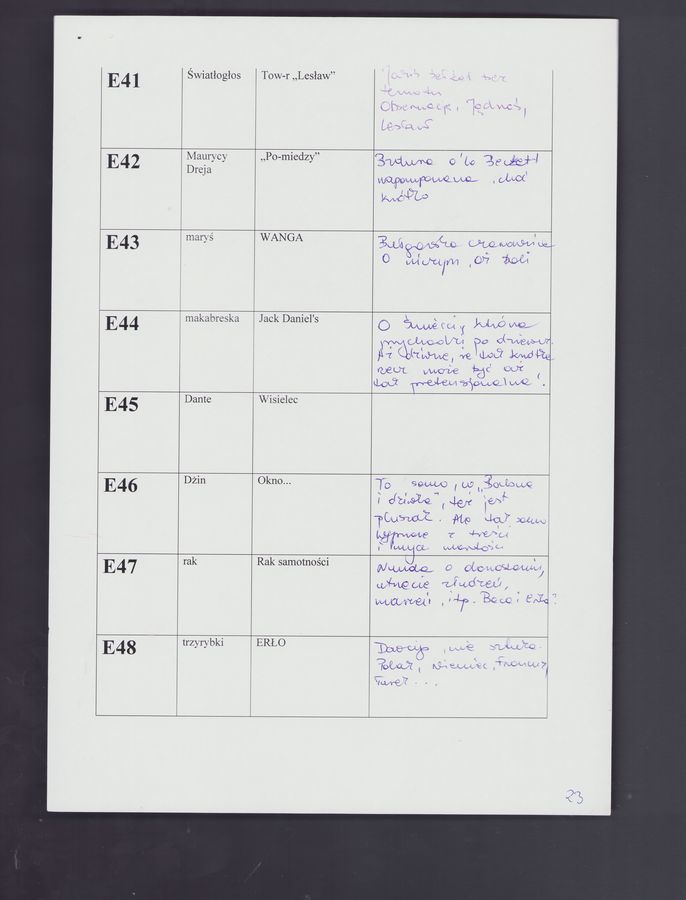 E41 Światłogłos Tow-r „Lesław"
bełkot bez
tematu
Obserwacje, Jądnoś,
Lesław
E42 Maurycy „Po-miedzy"
Dreja
Bzdura a'la Beckett
napompowana, choć
krótko
E43 maryś WANGA
czarownica
O niczym, aż boli
E44 makabreska Jack Daniel's
O śmierci, która
przychodzi po dziewcz.
Aż dziwne, że tak krótka
rzecz może być aż
tak pretensjonalna!
E45 Dante Wisielec
E46 Dżin Okno...
To samo, w „Barbuna
i ", też jest
pluszak. Ale tak samo
wyprane z treści
i wartości
E47 rak Rak samotności
Nuda o dorastaniu,
utracie złudzeń,
marzeń, itp. Baco i Erło?
E48 trzyrybki ERŁO
Dowcip, nie sztuka.
Polak, Niemiec, Francuz,
Turek...
23